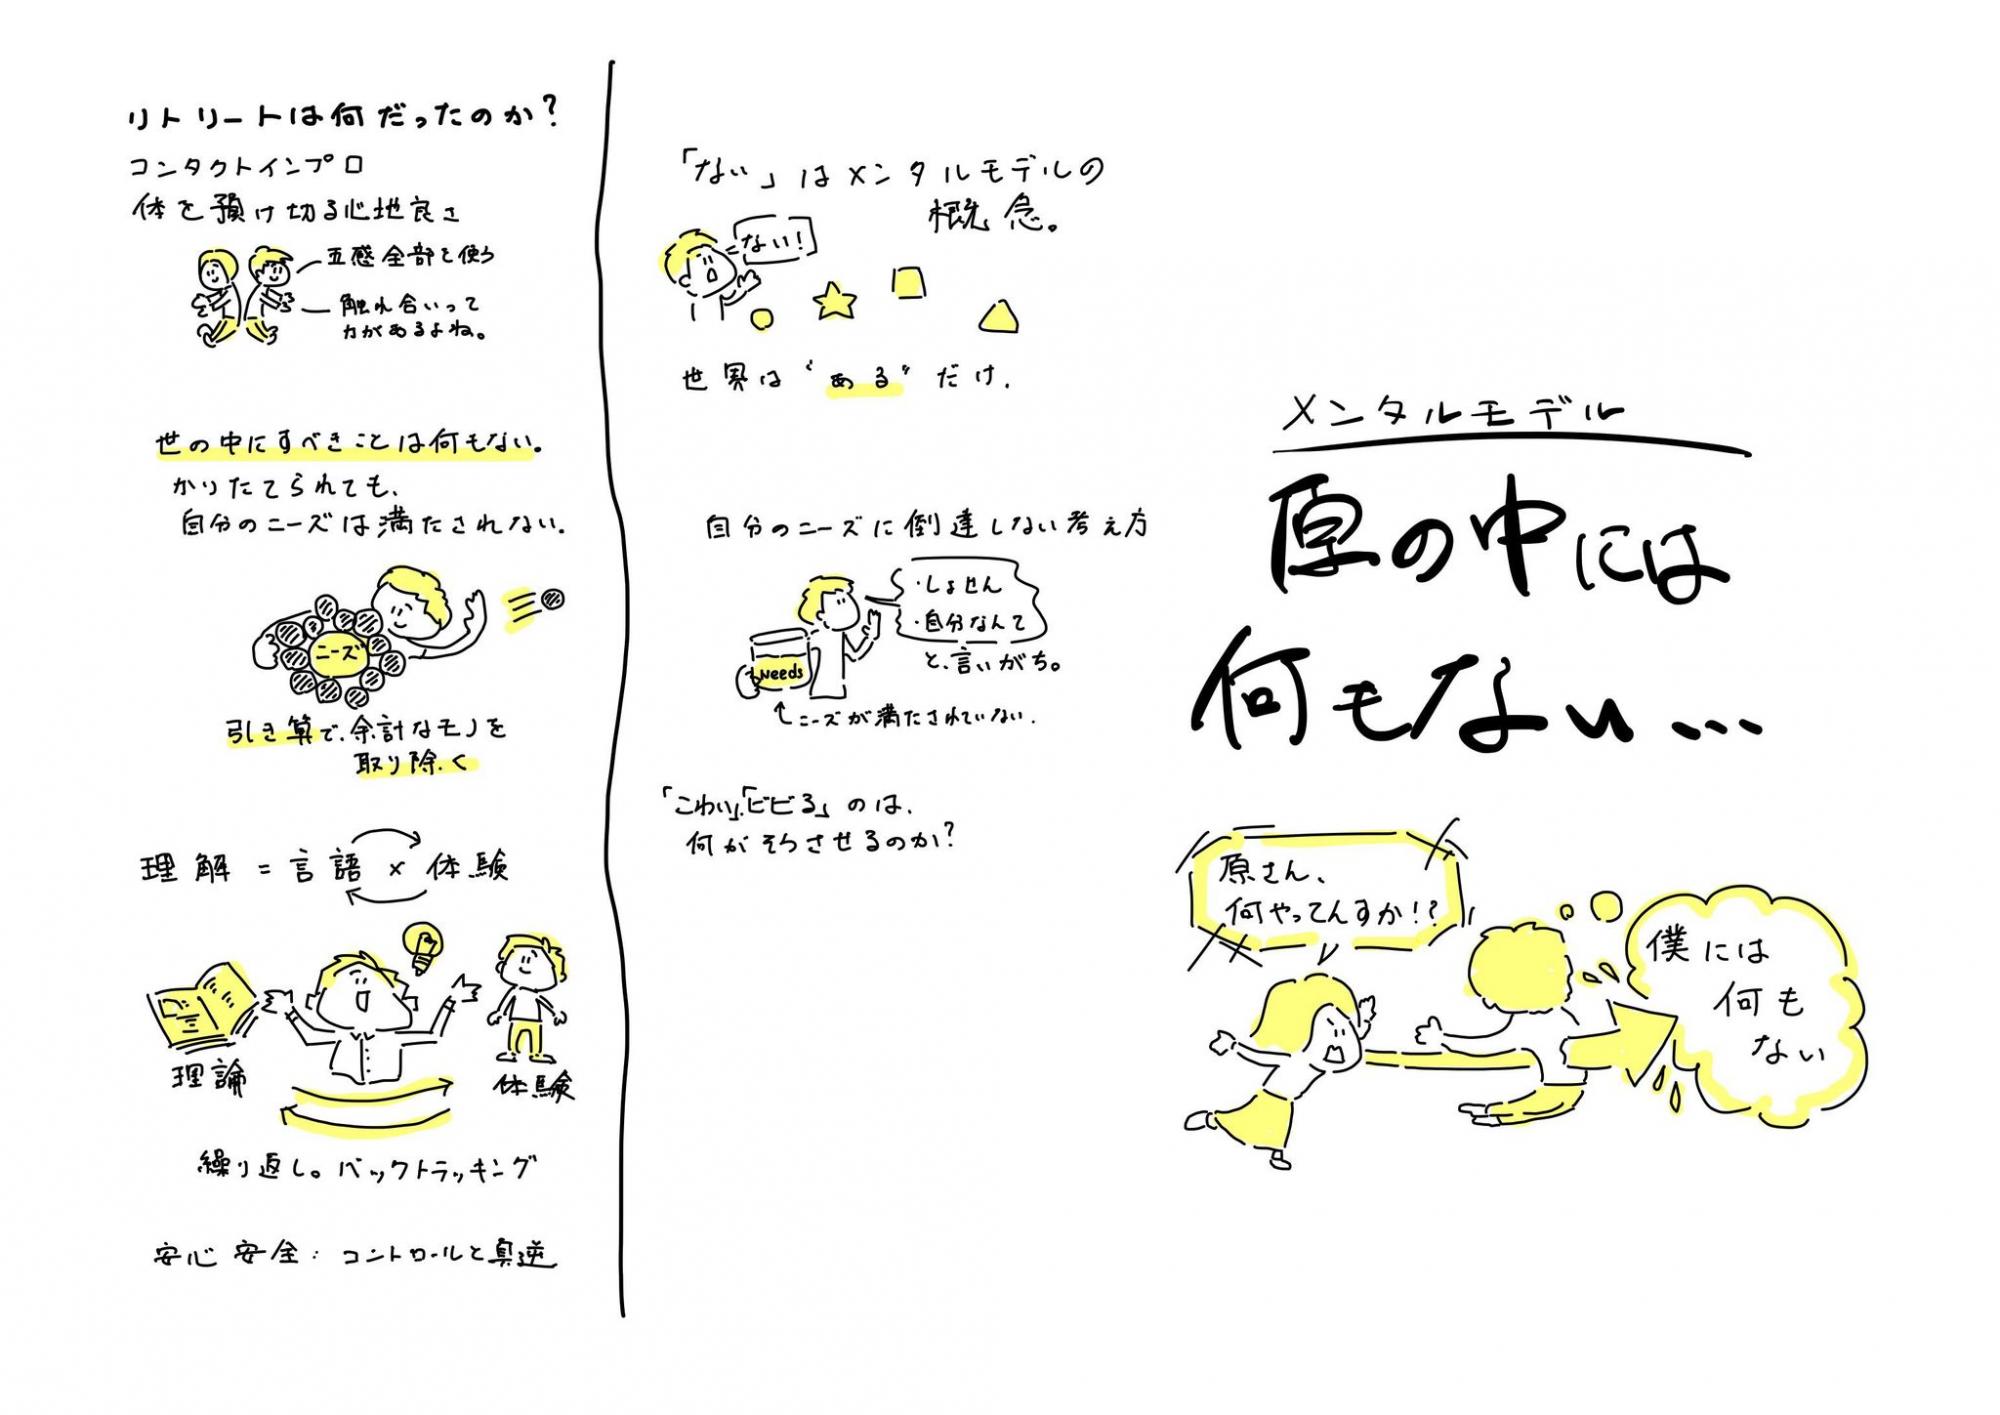 リトリートは何だったのか?
コンタクトインプロ
体を預け切る心地良さ
五感全部を使う
触れ合いって
力があるよね。
世の中にすべきことは何もない。
かりたてられても、
自分のニーズは満たされない。
ニーズ
引き算で、余計なモノを
取り除く
理解=言語×体験
理論
体験
繰り返し。バックトラッキング
安心安全:コントロールと真逆
「ない」はメンタルモデルの
概念。
ない!
世界は“ある”だけ.
自分のニーズに倒達しない考え方
・しょせん
・自分なんて
と、言いがち。
Needs
ニーズが満たされていない.
「こわい」、「ビビる」のは、
何がそうさせるのか?
メンタルモデル
原の中には
何もない...
原さん、
何やってんすか!?
僕には
何も
ない